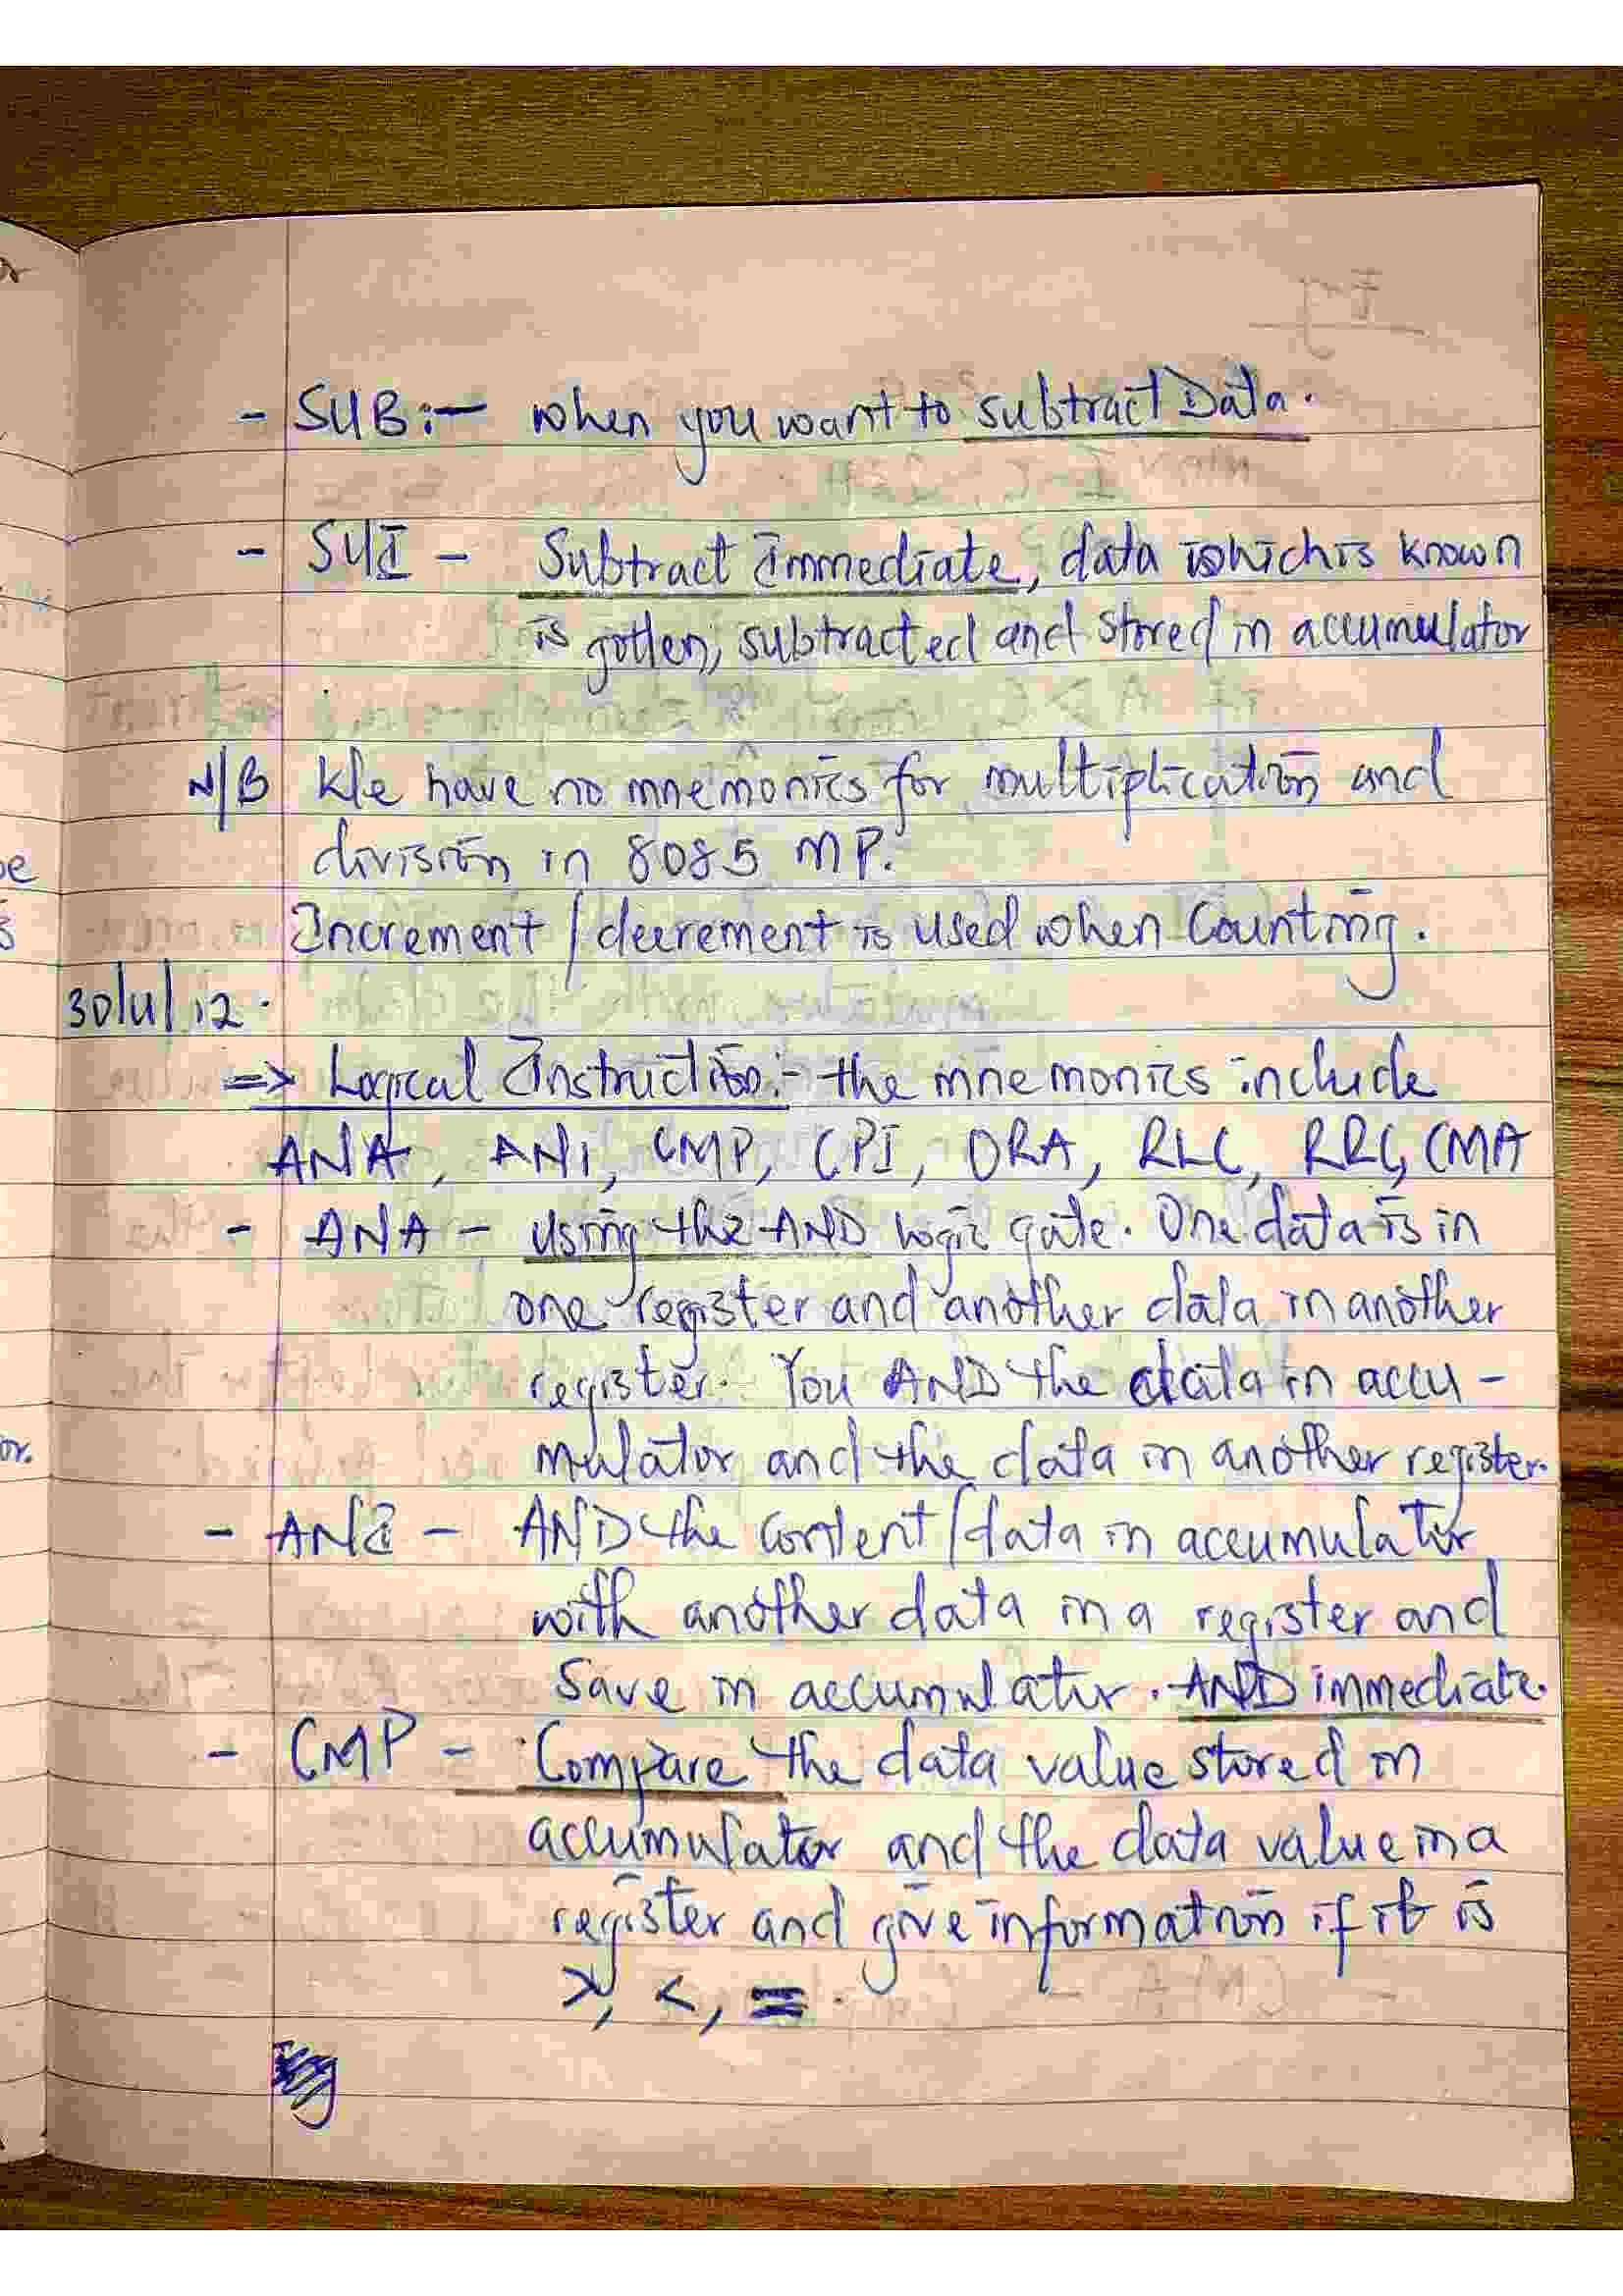 - SUB:- when you want to subtract Data.
- SUI - Subtract Immediate, data which is known
is gotten, subtracted and stored in accumulator
N/B We have no mnemonics for multiplication and
division in 8085 MP.
Increment / decrement is used when Counting.
30/4/12.
=> Logical Instruction:- the mnemonics include
ANA, ANI, CMP, CPI, ORA, RLC, RRC, CMA
- ANA - Using the AND logic gate. One data is in
one register and another data in another
register. You AND the data in accu-
mulator and the data in another register.
- ANI - AND the content/data in accumulator
with another data in a register and
Save in accumulator. AND immediate.
- CMP - Compare the data value stored in
accumulator and the data value in a
register and give information if it is
>, <, =.